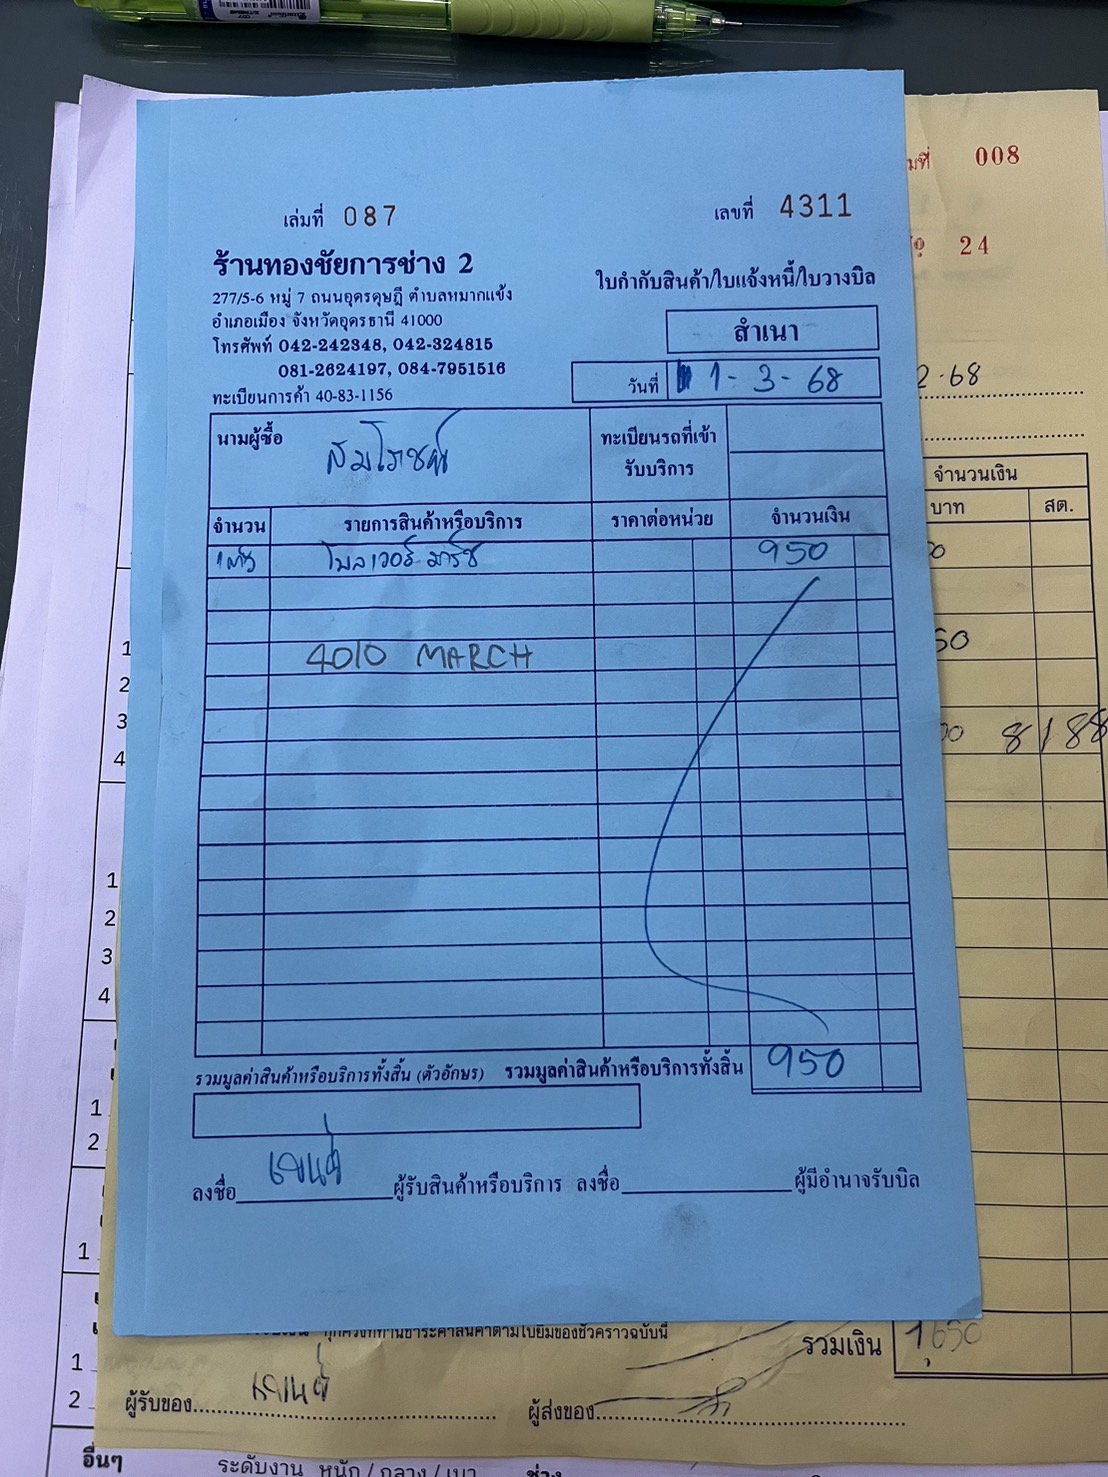 เล่มที่ 087
เลขที่ 4311
ร้านทองชัยการช่าง 2
277/5-6 หมู่ 7 ถนนอุดรดุษฎี ตำบลหมากแข้ง
อำเภอเมือง จังหวัดอุดรธานี 41000
โทรศัพท์ 042-242348, 042-324815
081-2624197, 084-7951516
ทะเบียนการค้า 40-83-1156
ใบกำกับสินค้า/ใบแจ้งหนี้/ใบวางบิล
สำเนา
วันที่ 1-3-68
นามผู้ซื้อ สมโภชน์
ทะเบียนรถที่เข้า
รับบริการ
จำนวน รายการสินค้าหรือบริการ ราคาต่อหน่วย จำนวนเงิน
1 ตัว โบลเวอร์ มาร์ช 950
4010 MARCH
รวมมูลค่าสินค้าหรือบริการทั้งสิ้น (ตัวอักษร) รวมมูลค่าสินค้าหรือบริการทั้งสิ้น 950
ลงชื่อ ผู้รับสินค้าหรือบริการ ลงชื่อ ผู้มีอำนาจรับบิล
008
24
2-68
จำนวนเงิน
บาท สต.
50
8188
1
2
3
4
1
2
3
4
1
2
1
1
2
รวมเงิน 1,650
ผู้รับของ ผู้ส่งของ
อื่นๆ ระดับงาน หนัก / กลาง / เบา ช่าง